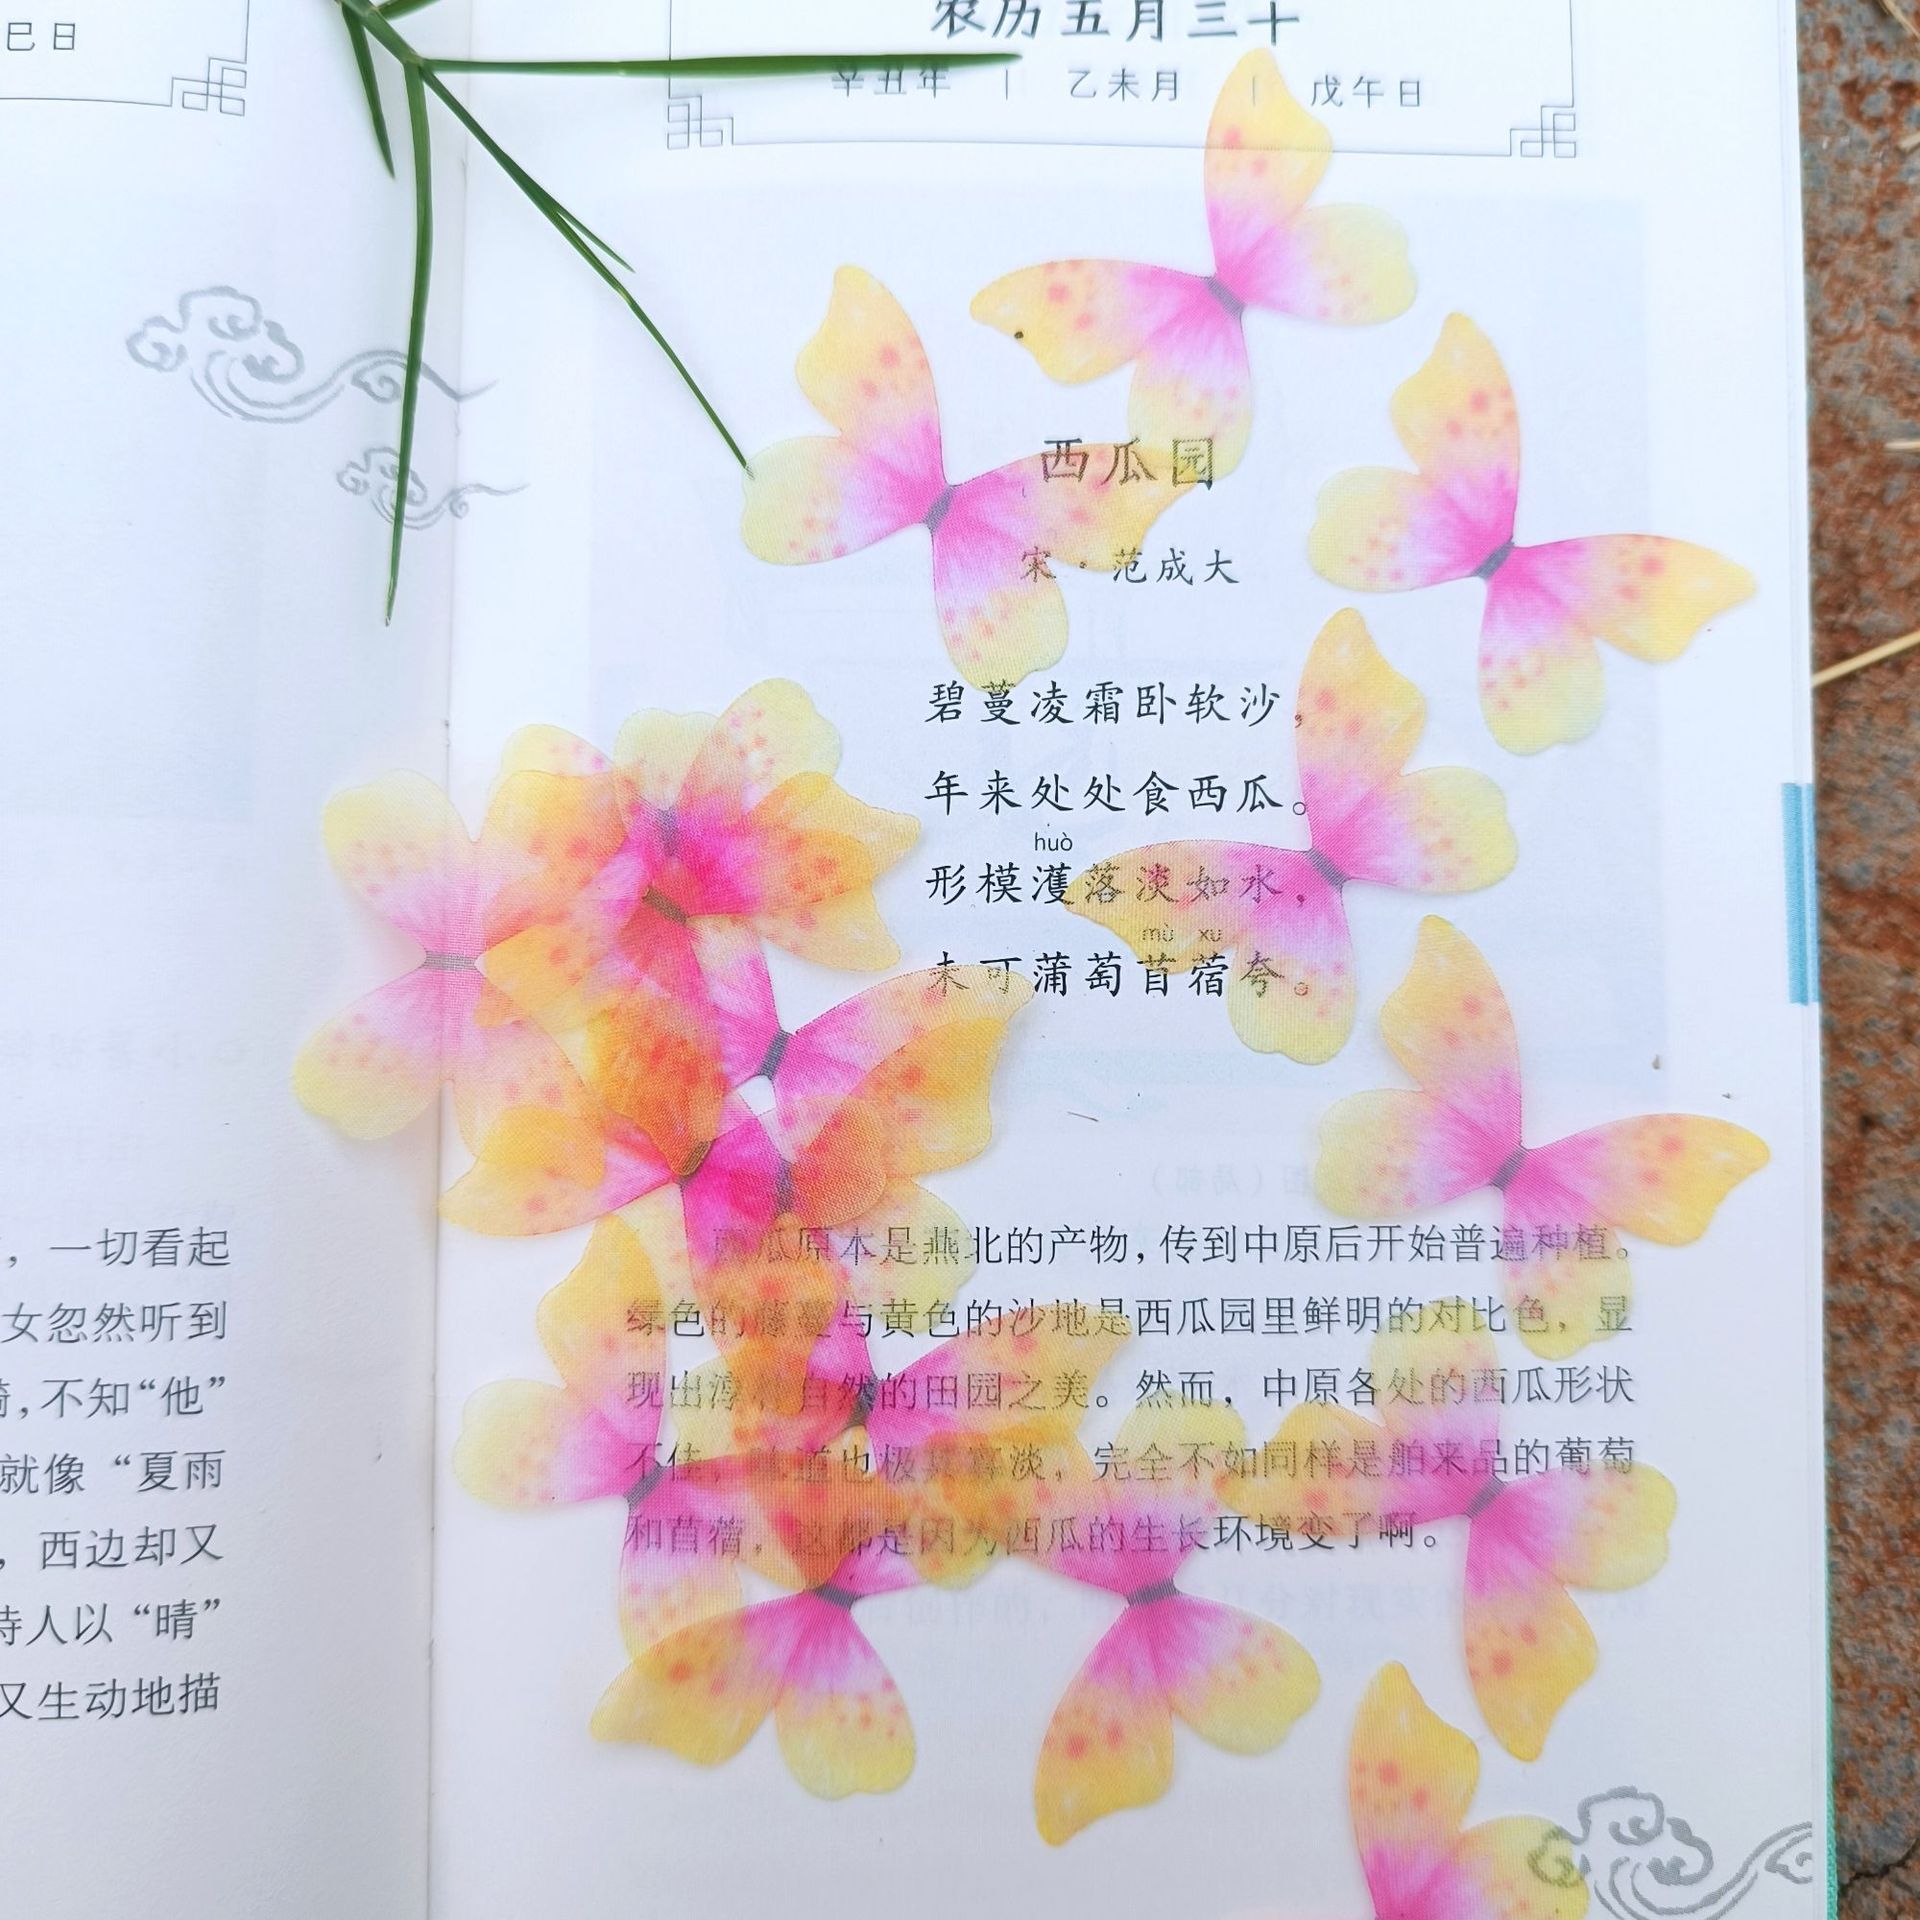 巳日
，一切看起
女忽然听到
，不知“他”
就像“夏雨
，西边却又
诗人以“晴”
又生动地描
农历五月三十
辛丑年 | 乙未月 | 戊午日
西瓜园
宋·范成大
碧蔓凌霜卧软沙，
年来处处食西瓜。
huò
形模濩落淡如水，
mù xu
未可蒲萄苜蓿夸。
西瓜原本是燕北的产物，传到中原后开始普遍种植。
绿色的藤蔓与黄色的沙地是西瓜园里鲜明的对比色，显
现出淳朴自然的田园之美。然而，中原各处的西瓜形状
不佳，味道也极其寡淡，完全不如同样是舶来品的葡萄
和苜蓿，这都是因为西瓜的生长环境变了啊。